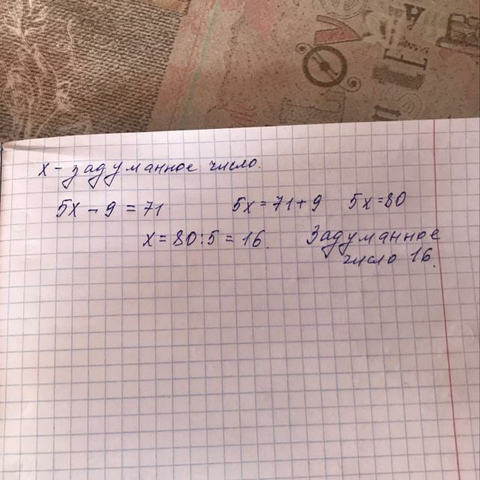 х - задуманное число.
5х - 9 = 71 5х = 71 + 9 5х = 80
х = 80 : 5 = 16. Задуманное
число 16.